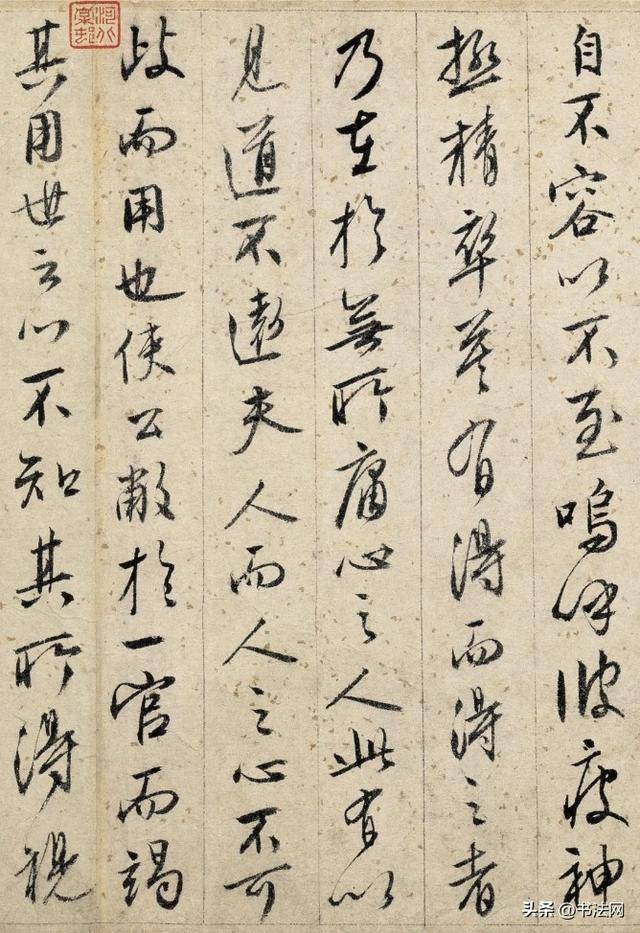 自不容以不至嗚呼彼疲神
極精卒莫有得而得之者
乃在於無所庸心之人此有以
見道不遠夫人而人之心不可
歧而用也使公敝於一官而竭
其用世之心不知其所得視
头条 @书法网